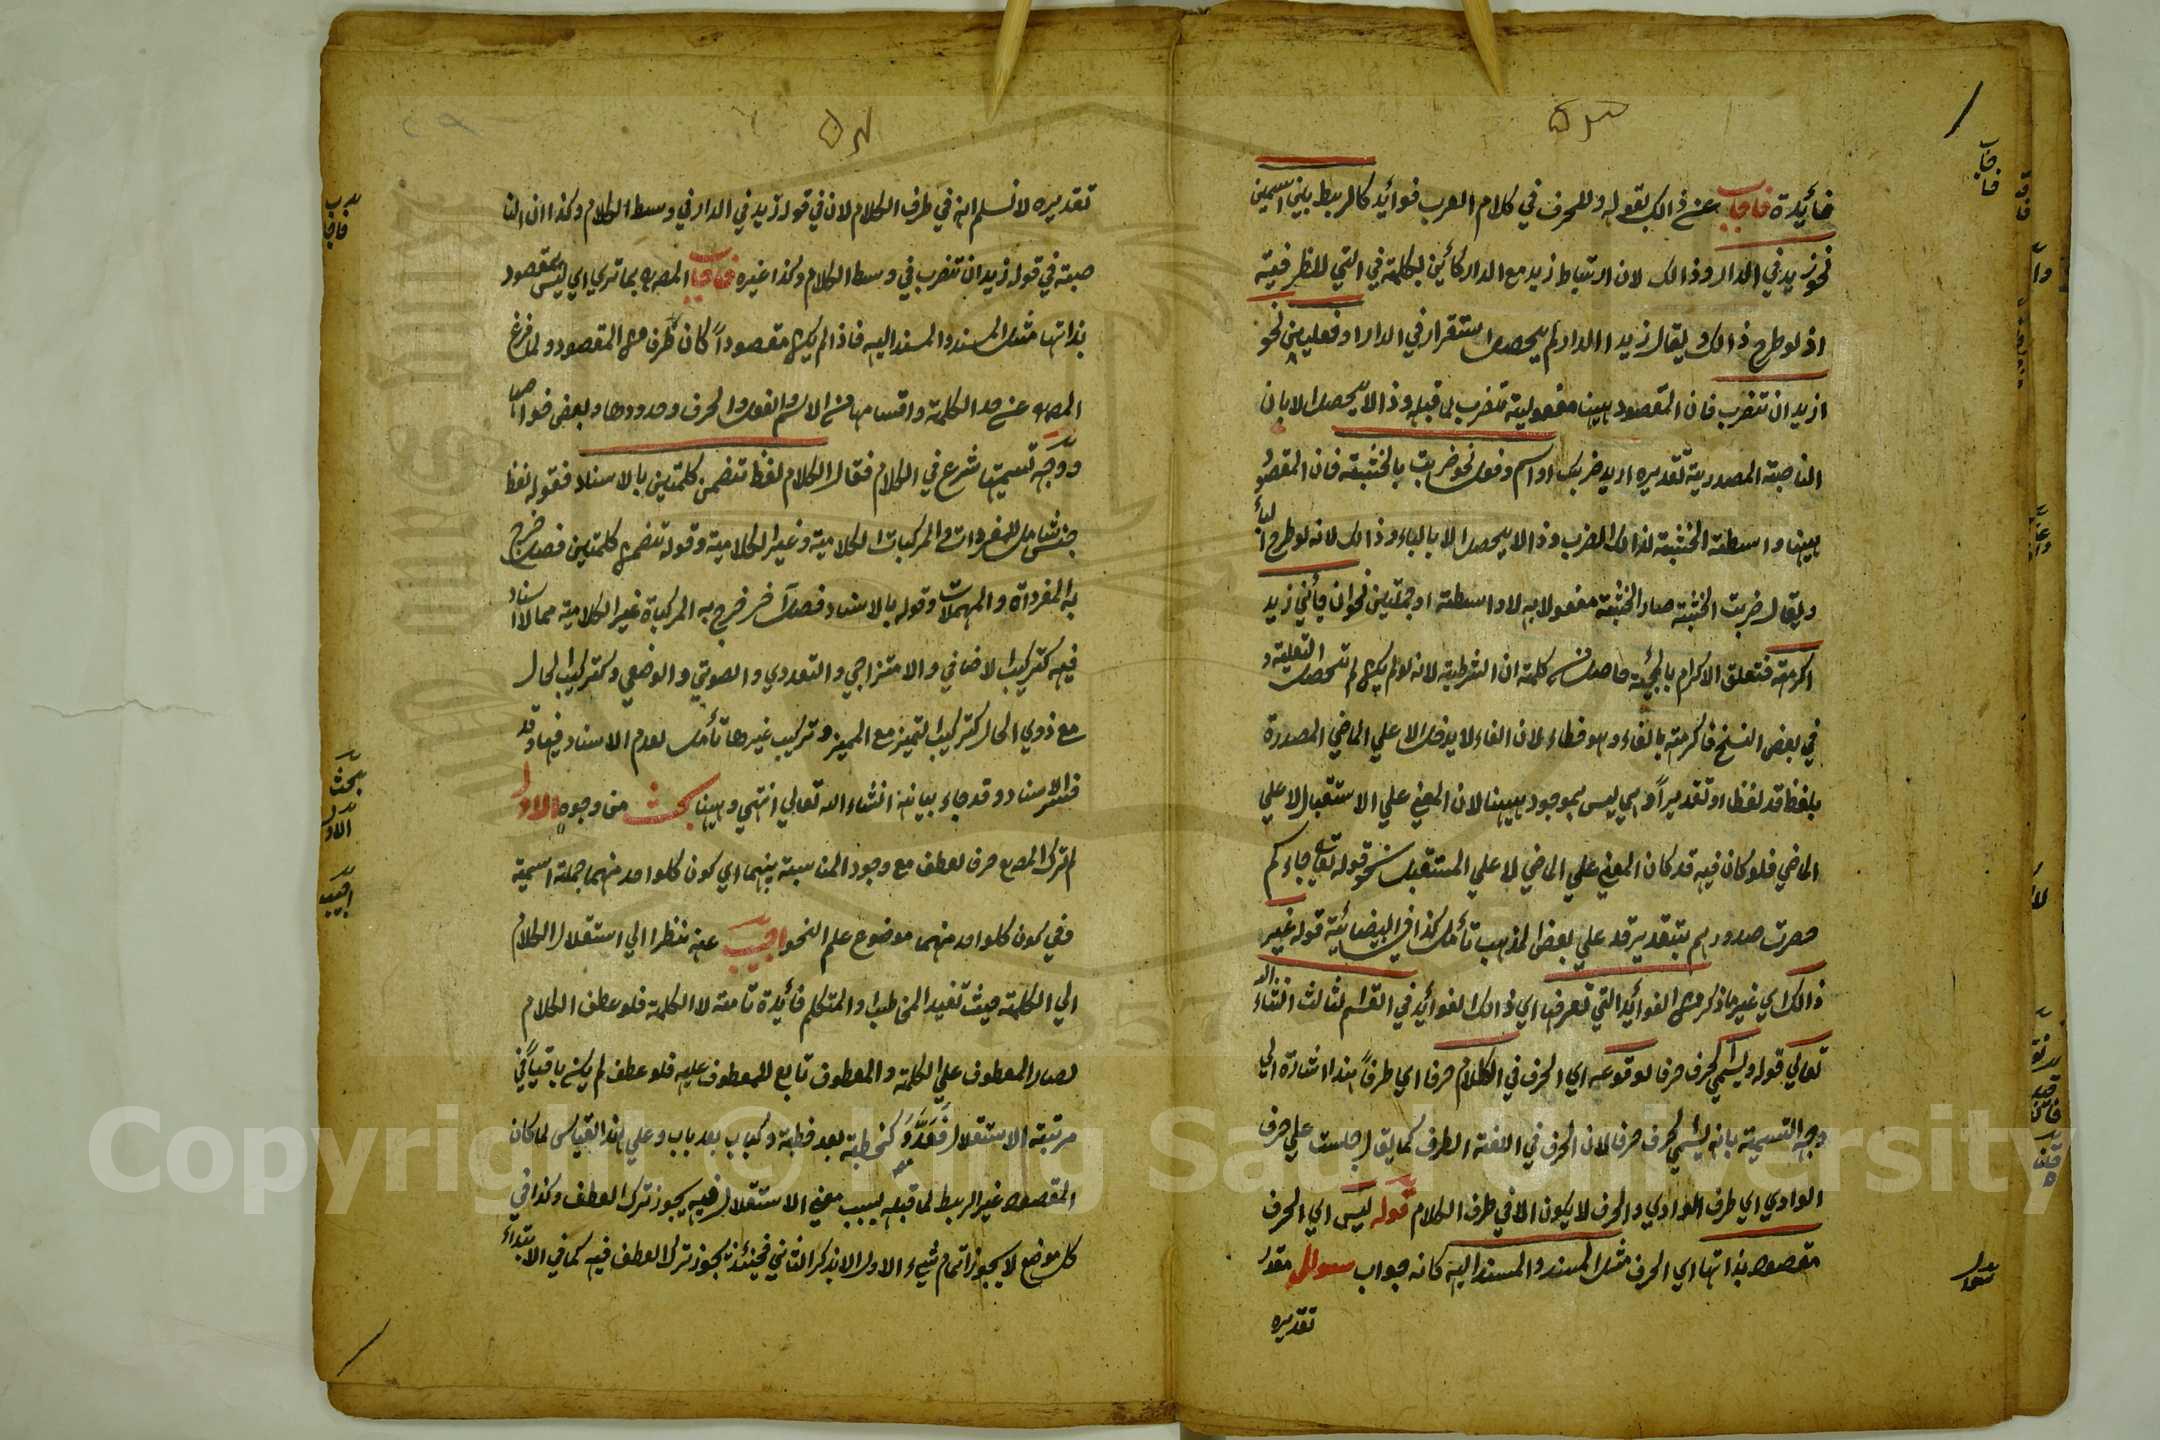 فائدة فاجاب عن ذالك بقوله وللحرف في كلام العرب فوائد كالربط بين اسمين
نحو زيد في الدار وذالك لان ارتباط زيد مع الدار كائن بكلمة في التي للظرفية
اذ لو طرح ذالك ويقال زيد االدار لم يحصل استقرار في الدار او فعلين نحو
ازيد ان تضرب فان المقصود ههنا مفعولية تضرب لما قبله وذالا يحصل الا بان
الناصبة المصدرية تقديره اريد ضربك او اسم وفعل نحو ضربت بالخشبة فان المقصود
ههنا واسطة الخشبة لذالك الضرب وذالا يحصل الا بالباء وذالك لانه لو طرح الباء
ويقال ضربت الخشبة صار الخشبة مفعولا به لا واسطة او جملتين نحو ان جائني زيد
اكرمته فتعلق الاكرام بالمجيئة حاصل من كلمة ان الشرطية لانه لو لم يكن لم تحصل التعليقة و
في بعض النسخ فاكرمته بالفاء وهو خطاء لان الفاء لا يدخل الا علي الماضي المصدرة
بلفظ قد لفظا او تقديراً وهي ليس بموجود ههنا لان المعني علي الاستقبال لا علي
الماضي فلو كان فيه قد كان المعني علي الماضي لا علي المستقبل نحو قوله تعالي جاءكم
حصرت صدورهم بتقدير قد علي بعض المذهب تأمل كذا في البيضائية قوله غير
ذالك اي غير ما ذكر من الفوائد التي تعرفها اي ذالك الفوائد في القسم الثالث انشاء الله
تعالي قوله ويسمي الحرف حرفا لوقوعه اي الحرف في الكلام حرفا اي طرفاً هذا اشارة الي
وجه التسمية بانه يسمي الحرف حرفا لان الحرف في اللغة الطرف كما يقال جلست علي حرف
الوادي اي طرف الوادي والحرف لا يكون الا في طرف الكلام قوله ليس اي الحرف
مقصوده بذاتها اي الحرف مثل المسند والمسند اليه كانه جواب سوال مقدر
تقديره
تقديره لا نسلم انه في طرف الكلام لان في قوله زيد في الدار في وسط الكلام وكذا ان النا
صبة في قوله زيد ان تضرب في وسط الكلام وكذا غيره فاجاب المصه بما تري اي ليس بمقصود
بذاتها مثل المسند والمسند اليه فاذ لم يكن مقصوداً كان طرف من المقصود ولما فرغ
المصه عن حد الكلمة واقسامها من الاسم والفعل والحرف وحدودها وبعض خواصها
ووجه تسميتها شرع في الكلام فقال الكلام لفظ تضمن كلمتين بالاسناد فقوله لفظ
جنس شامل للمفردات والمركبات الكلامية وغير الكلامية وقوله تضمن كلمتين فصل خرج
به المفرداة والمهملات وقوله بالاسناد فصل آخر خرج به المركبة غير الكلامية مما لا اسناد
فيه كتركيب الاضافي والامتزاجي والتعددي والصوتي والوضعي وكتركيب الحال
مع ذوي الحال كتركيب التميز مع المميز وتركيب غيرها تأمل لعدم الاسناد فيها وقد
فسر الاسناد وقد جاء بيانه انشاء الله تعالي انتهي وههنا بحث من وجوه الاول
لم ترك المصه حرف لعطف مع وجود المناسبة بينهما اي كون كلواحد منهما جملة اسمية
وفي كون كلواحد منهما موضوع علم النحو اجيب عنه نظرا الي استقلال الكلام
الي الكلمة حيث تفيد المخاطب او المتكلم فائدة تامة لا الكلمة فلو عطف الكلام
لصار المعطوف علي الكلمة والمعطوف تابع للمعطوف عليه فلو عطف لم يكن باقياً في
مرتبة الاستقلال فعدو كخطبة بعد خطبة وكباب بعد باب وعلي هذا القياس لما كان
المقصود غير الربط لما قبله لسبب معني الاستقلال فيه يجوز ترك العطف وكذا في
كل موضع لا يجوز اتمام شيء الاول الا بذكر الثاني فحينئذ يجوز ترك العطف فيه كما في الابتداء
فاجاب
سوال
فاجاب
بحث
الاول
اجيب